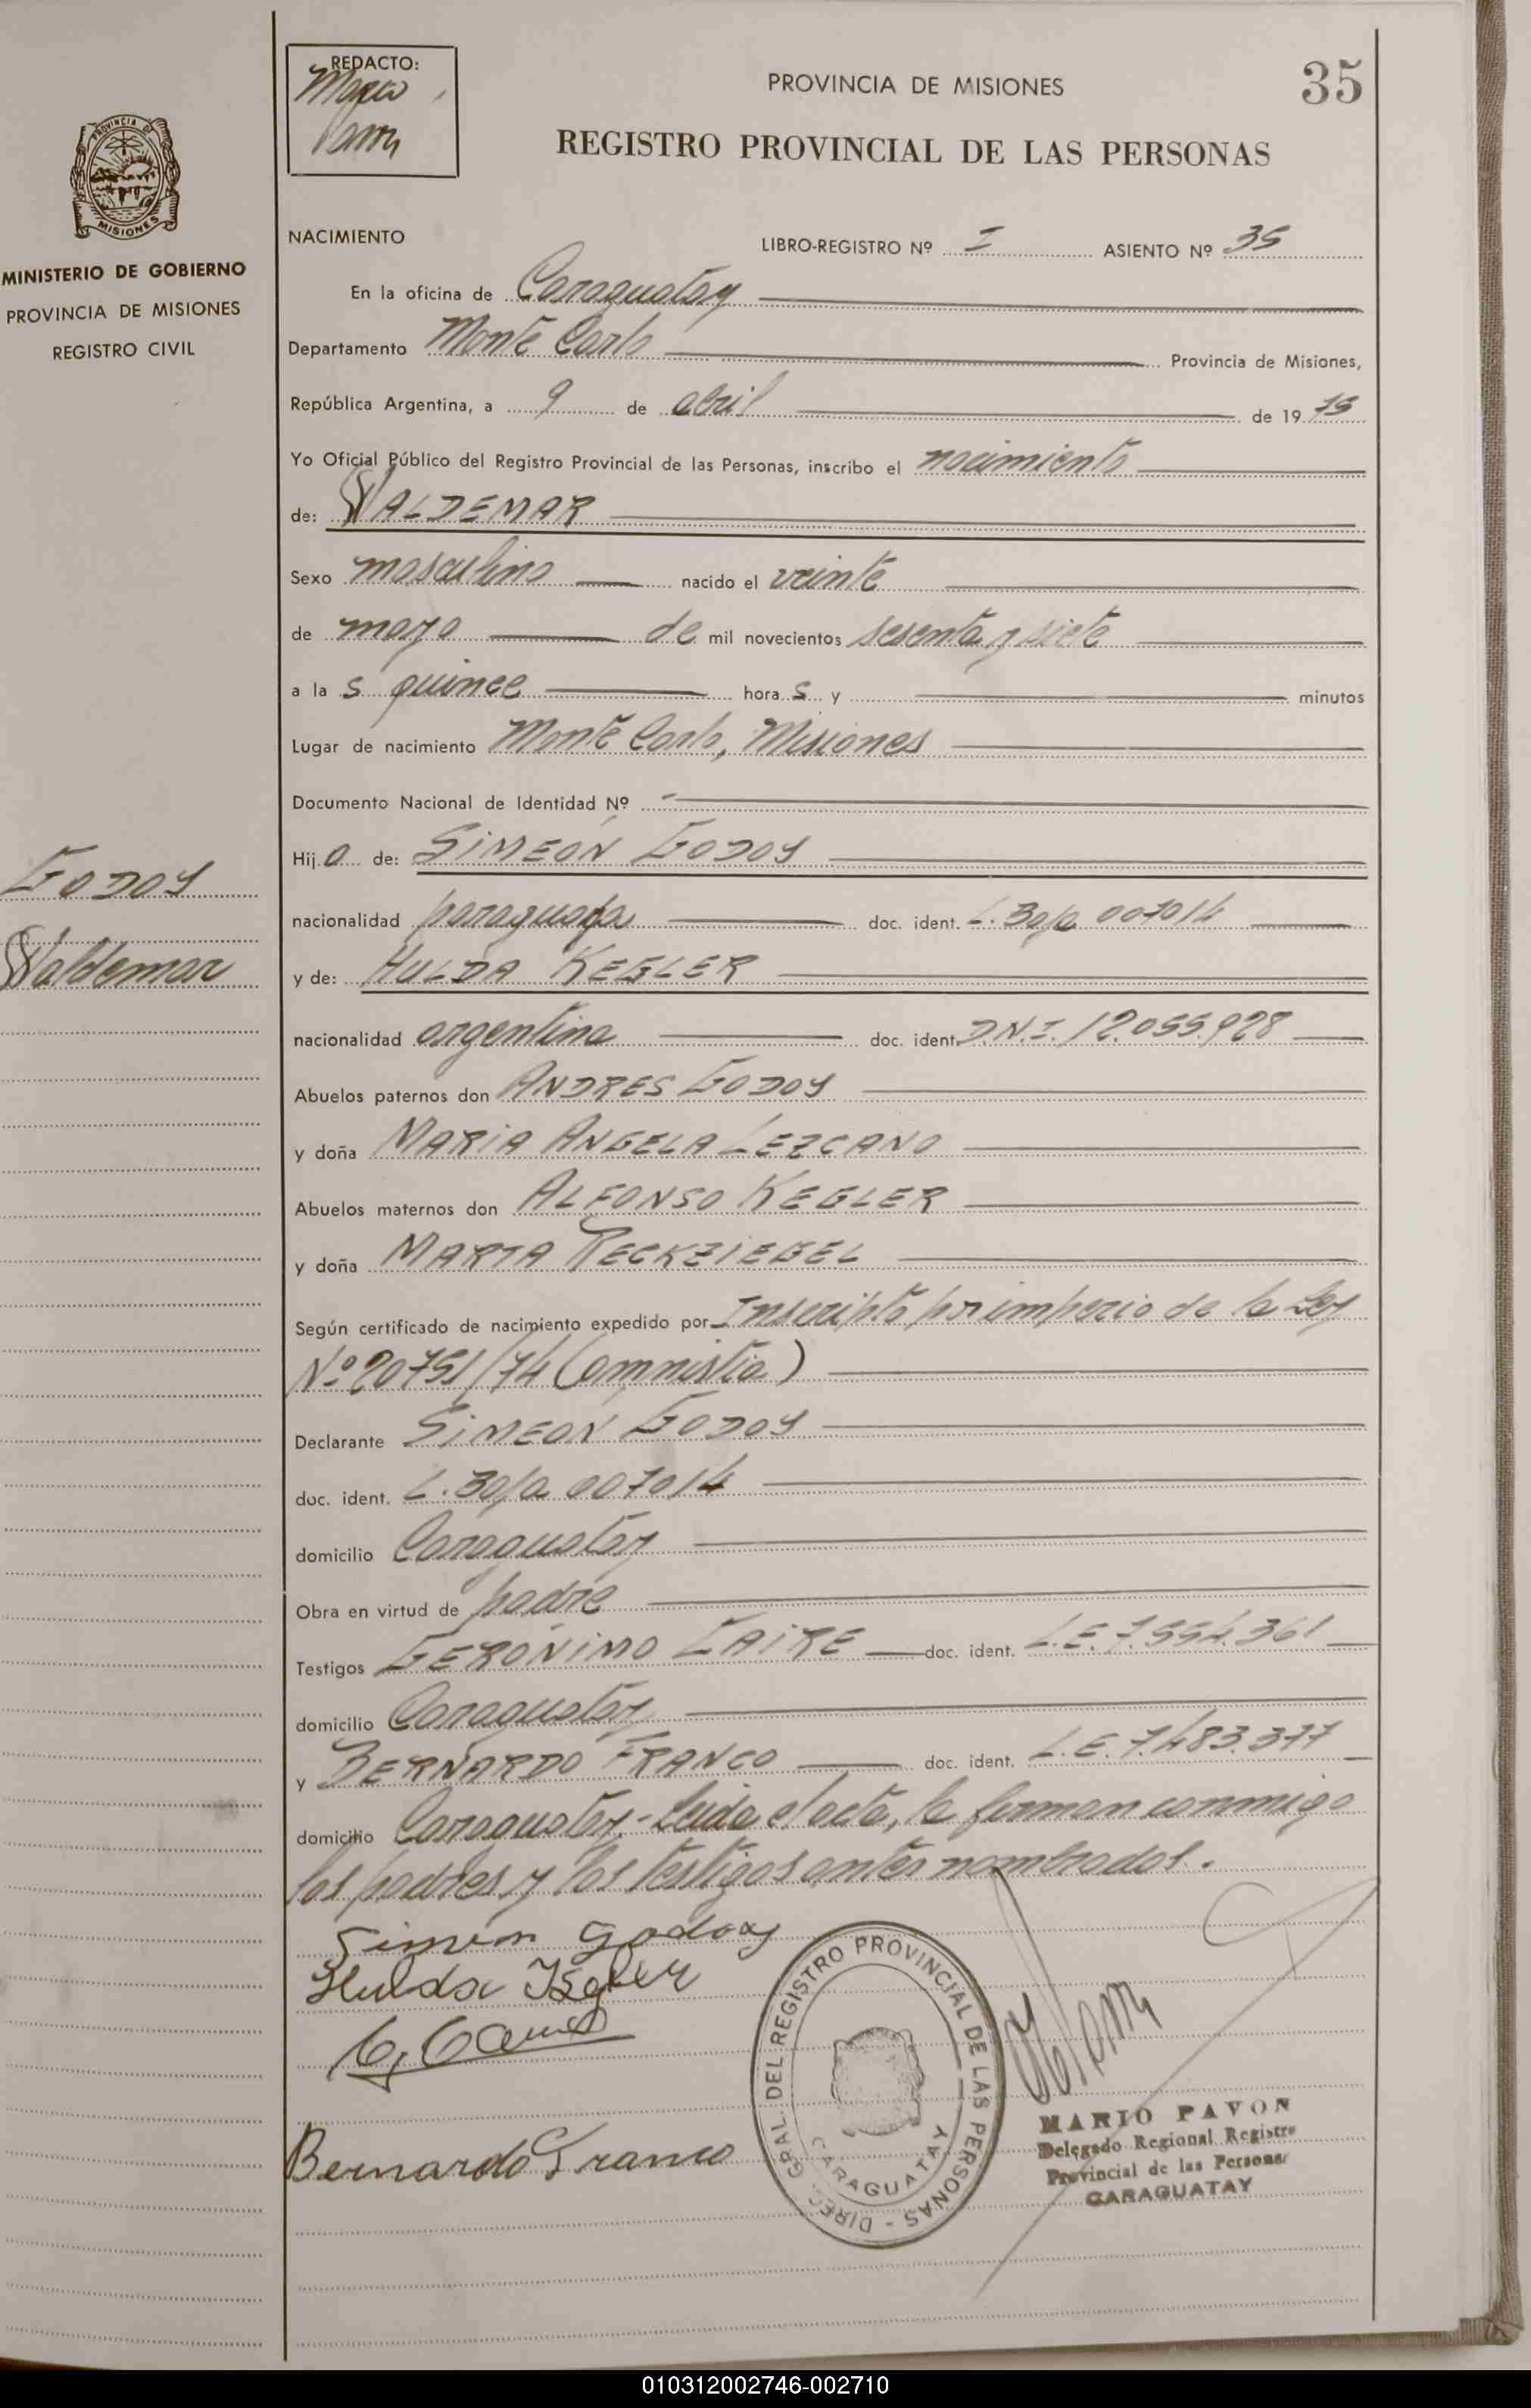 REDACTO:
Mario
Pavon
PROVINCIA DE MISIONES
35
REGISTRO PROVINCIAL DE LAS PERSONAS
PROVINCIA DE
MISIONES
MINISTERIO DE GOBIERNO
PROVINCIA DE MISIONES
REGISTRO CIVIL
NACIMIENTO
LIBRO-REGISTRO Nº I ASIENTO Nº 35
En la oficina de Caraguatay
Departamento Monte Carlo Provincia de Misiones,
República Argentina, a 9 de abril de 1975
Yo Oficial Público del Registro Provincial de las Personas, inscribo el nacimiento
de: WALDEMAR
Sexo masculino nacido el veinte
de mayo de mil novecientos sesenta y siete
a la s quince hora s y minutos
Lugar de nacimiento Monte Carlo, Misiones
Documento Nacional de Identidad Nº -
Hij o de: SIMEÓN GODOY
Godoy
nacionalidad paraguaya doc. ident. L. 30/a 007014
Waldemar
y de: HULDA KEGLER
nacionalidad argentina doc. ident. D.N.I. 12.055.928
Abuelos paternos don ANDRES GODOY
y doña MARIA ANGELA LEZCANO
Abuelos maternos don ALFONSO KEGLER
y doña MARTA RECKZIEGEL
Según certificado de nacimiento expedido por Inscripto por imperio de la Ley
Nº 20751/74 (amnistia)
Declarante SIMEÓN GODOY
doc. ident. L. 30/a 007014
domicilio Caraguatay
Obra en virtud de padre
Testigos GERÓNIMO doc. ident. L.E. 7.554.361
domicilio Caraguatay
y BERNARDO FRANCO doc. ident. L.E. 7.483.377
domicilio Caraguatay.- Leida el acta, la firman conmigo
los padres y los testigos antes nombrados.
Simeon Godoy
Hulda Kegler
Bernardo Franco
DIREC. GRAL. DEL REGISTRO PROVINCIAL DE LAS PERSONAS -
CARAGUATAY
MARIO PAVON
Delegado Regional Registro
Provincial de las Personas
CARAGUATAY
010312002746-002710